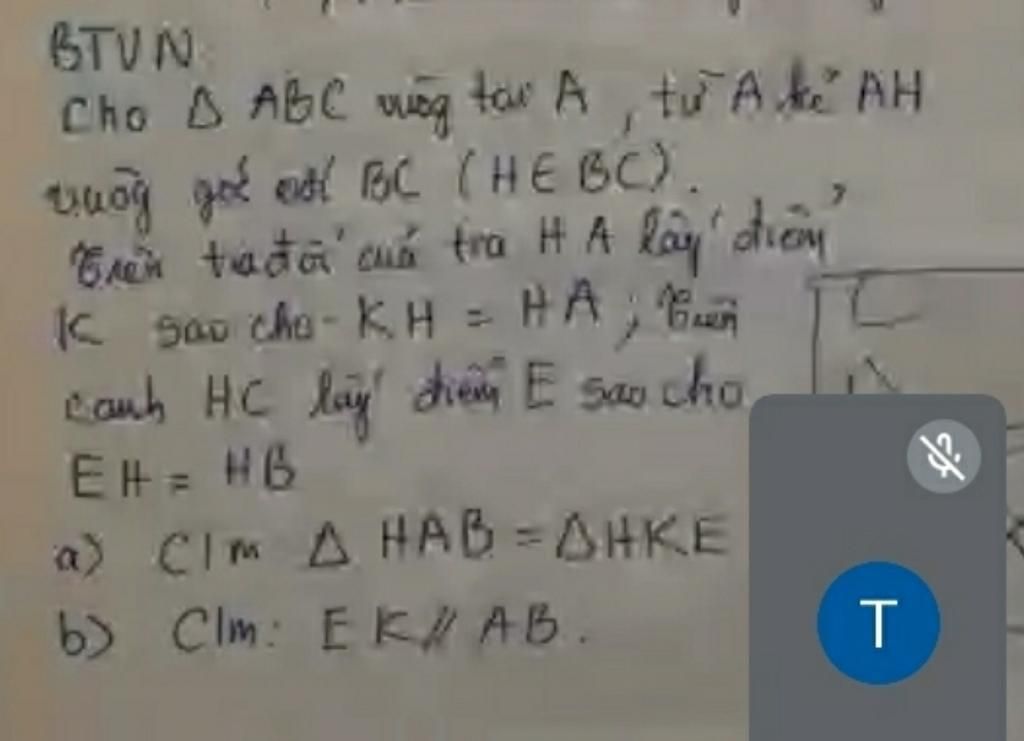 BTVN
Cho Δ ABC vuông tại A, từ A kẻ AH
vuông góc với BC (H ∈ BC).
Trên tia đối của tia HA lấy điểm
K sao cho KH = HA; Trên
cạnh HC lấy điểm E sao cho
EH = HB
a) C/m Δ HAB = Δ HKE
b) C/m: EK // AB.
T